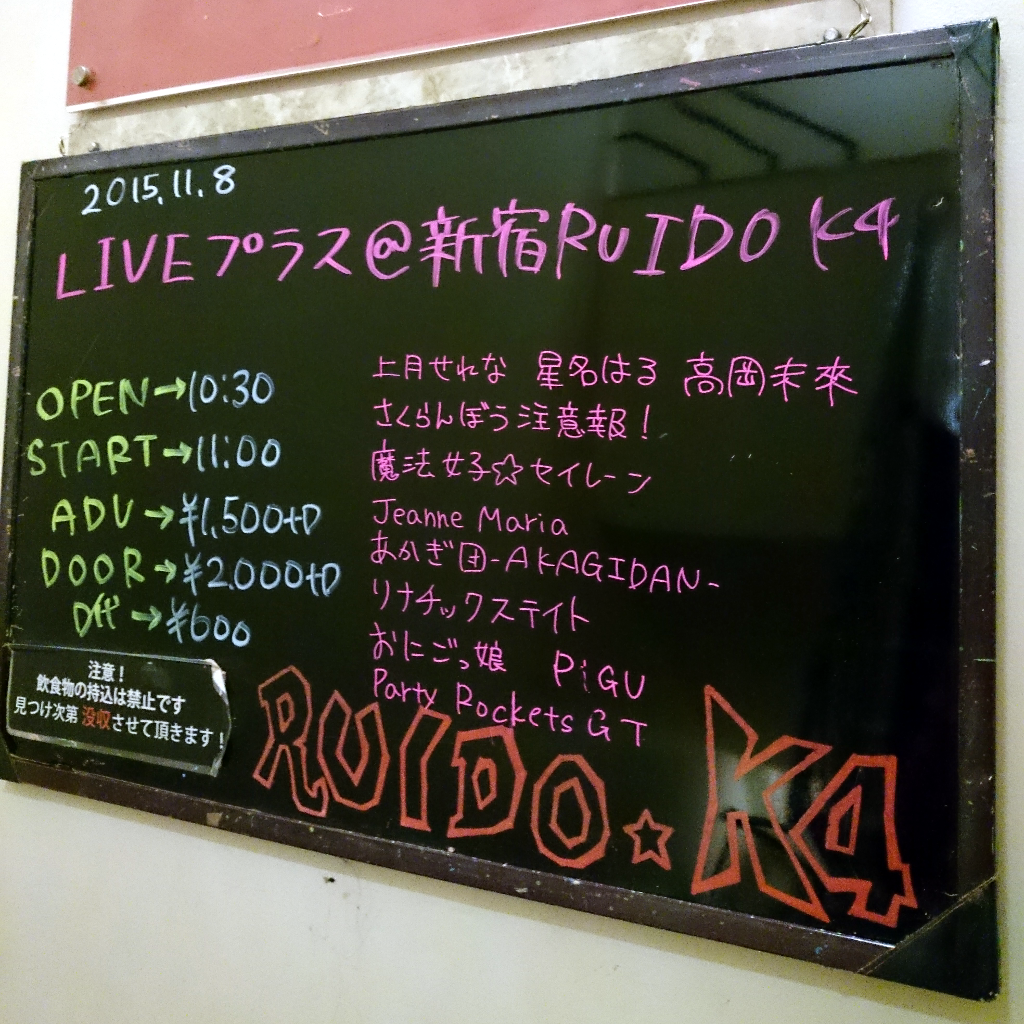 2015.11.8
LIVEプラス@新宿RUIDO K4
OPEN→10:30
START→11:00
ADV→¥1,500+D
DOOR→¥2.000+D
D代→¥600
上月せれな 星名はる 高岡未來
さくらんぼう注意報！
魔法女子☆セイレーン
Jeanne Maria
あかぎ団-AKAGIDAN-
リナチックステイト
おにごっ娘 PiGU
Party Rockets GT
注意！
飲食物の持込は禁止です
見つけ次第 没収させて頂きます！
RUIDO★K4